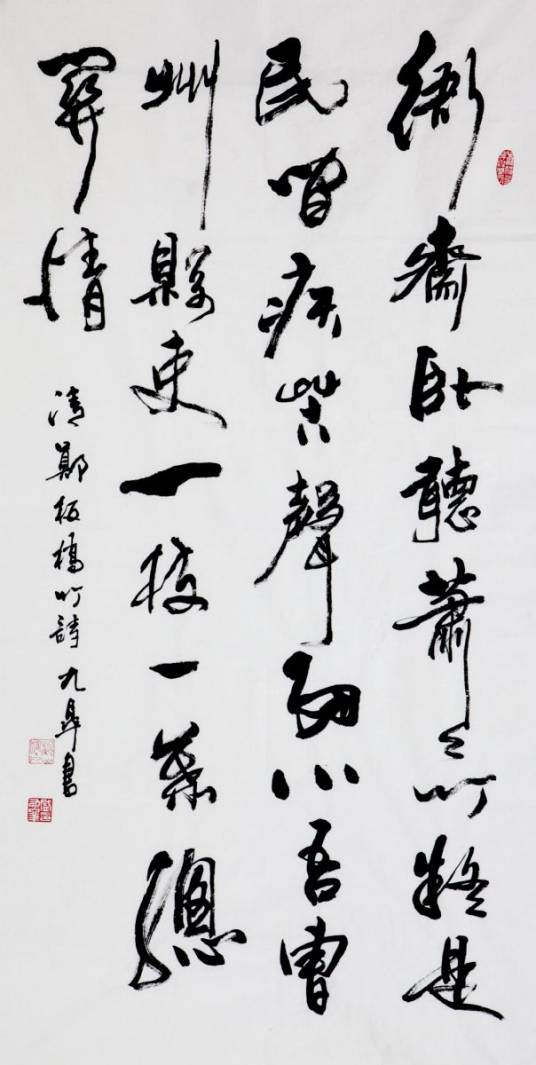 衙齋臥聽蕭〻竹疑是
民間疾苦聲些小吾曹
州縣吏一枝一葉總
關情
清鄭板橋竹詩九皋書